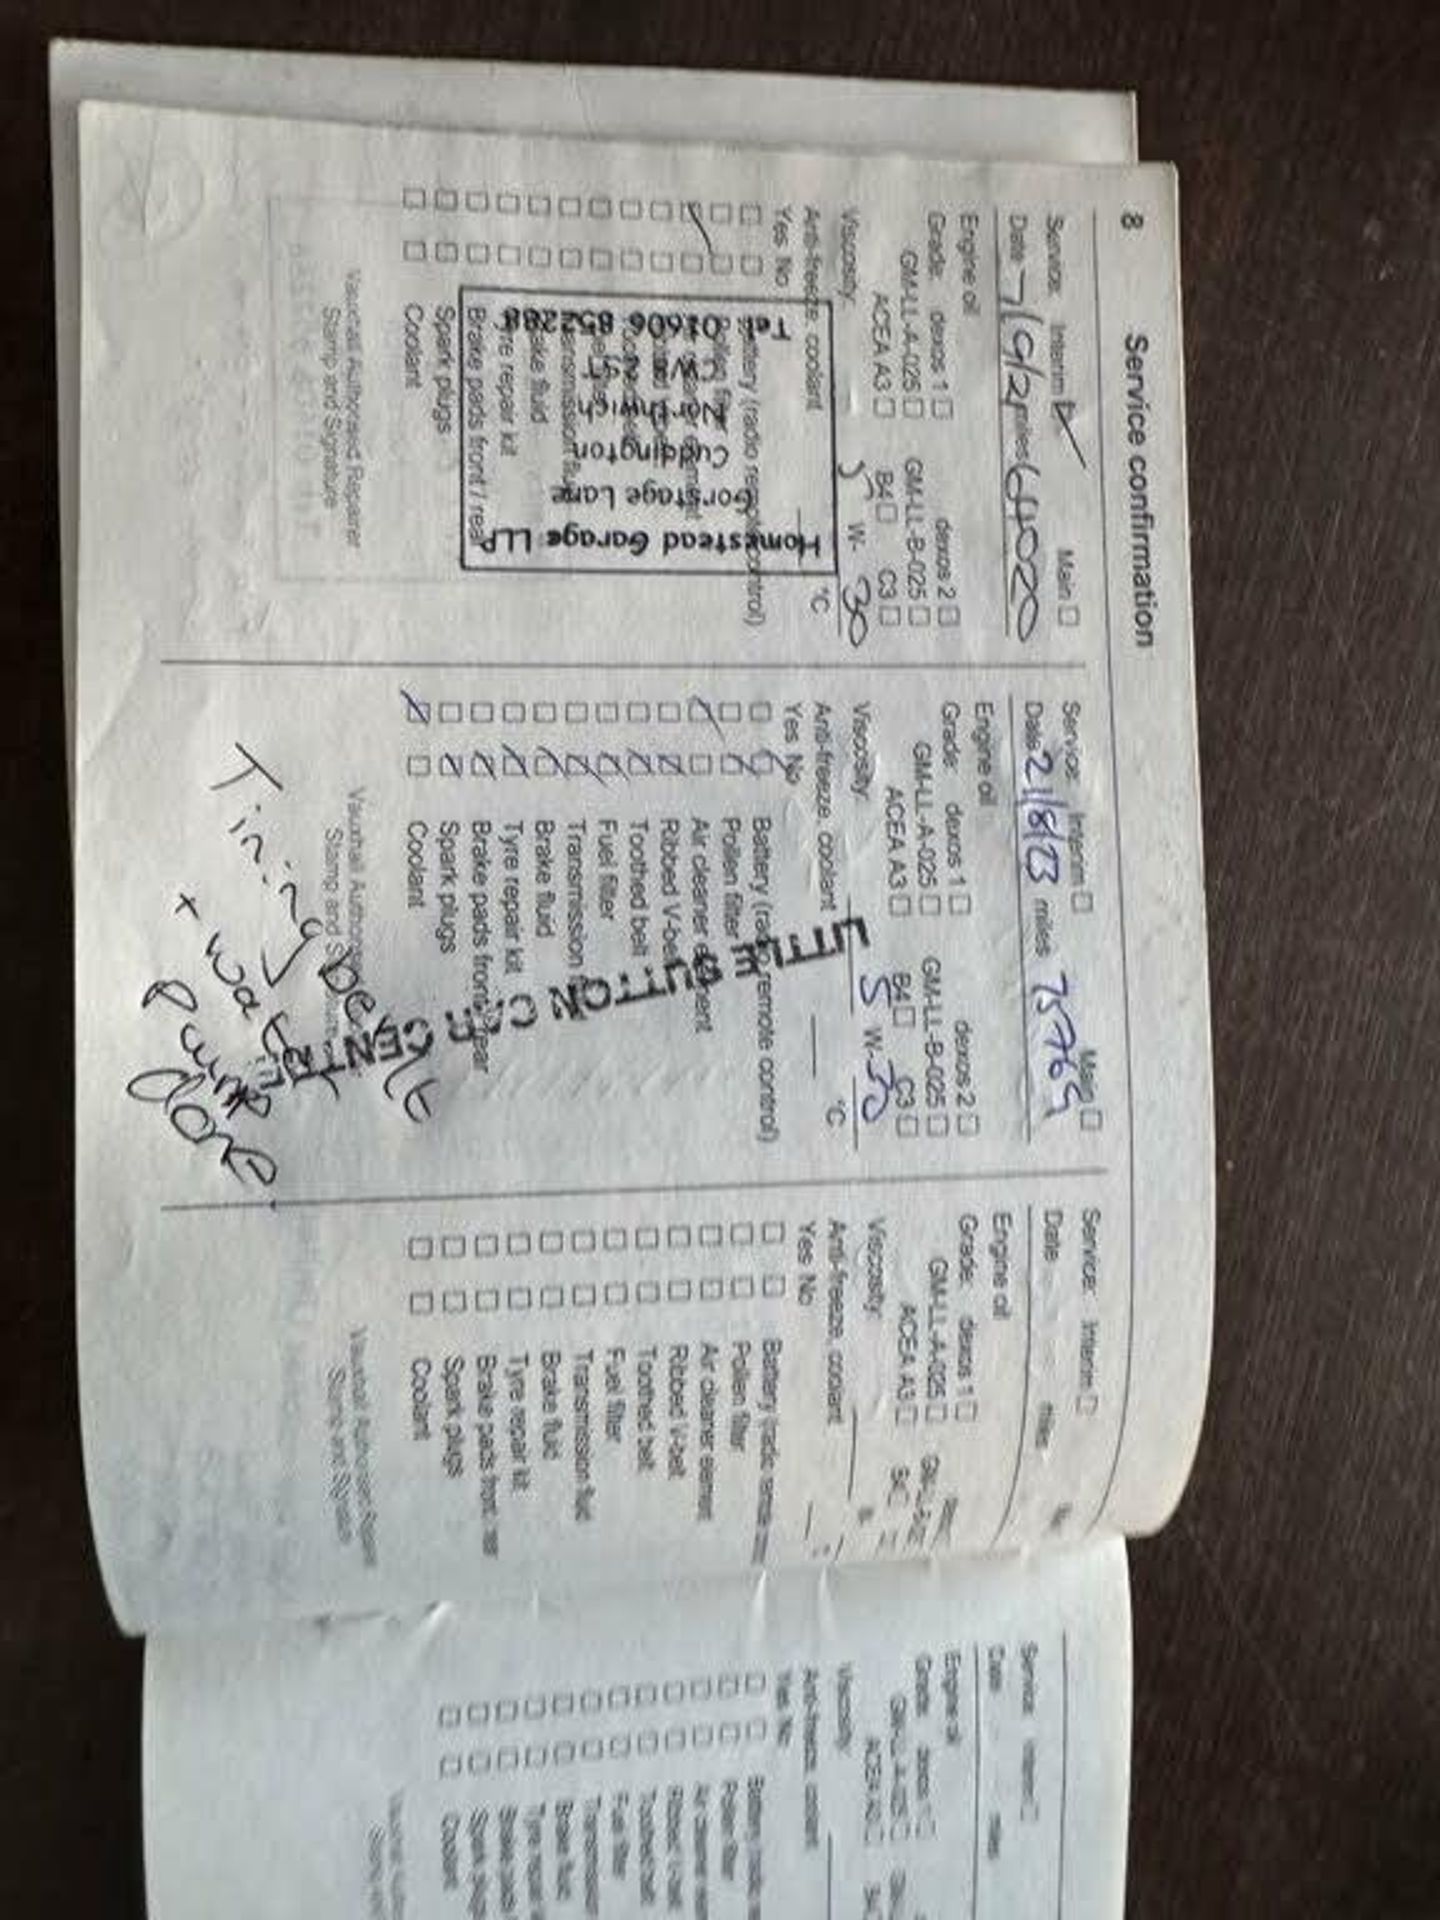 8
Service confirmation
Service: Interim Main
Date 7/9/2 miles 64020
Engine oil
Grade: dexos 1 dexos 2
GM-LL-A-025 GM-LL-B-025
ACEA A3 B4 C3
Viscosity: 5 W- 30
Anti-freeze, coolant °C
Yes No
Battery (radio remote control)
Brake fluid
Tyre repair kit
Brake pads front / rear
Spark plugs
Coolant
Vauxhall Authorised Repairer
Stamp and Signature
Homestead Garage LLP
Gorstage Lane
Cuddington
Northwich
CW8 2ST
Tel: 01606 852288
Service: Interim Main
Date 21/8/23 miles 75769
Engine oil
Grade: dexos 1 dexos 2
GM-LL-A-025 GM-LL-B-025
ACEA A3 B4 C3
Viscosity: 5 W-30
Anti-freeze, coolant °C
Yes No
Battery (radio remote control)
Pollen filter
Air cleaner element
Ribbed V-belt
Toothed belt
Fuel filter
Transmission
Brake fluid
Tyre repair kit
Brake pads front / rear
Spark plugs
Coolant
Vauxhall Authorised
Stamp and Signature
LITTLE SUTTON CAR CENTRE
Timing belt
+ water
pump
done
Service: Interim
Date miles
Engine oil
Grade: dexos 1
GM-LL-A-025
ACEA A3 B4
Viscosity:
Anti-freeze, coolant
Yes No
Battery (radio remote
Pollen filter
Air cleaner element
Ribbed V-belt
Toothed belt
Fuel filter
Transmission fluid
Brake fluid
Tyre repair kit
Brake pads front / rear
Spark plugs
Coolant
Vauxhall Authorised
Stamp and
Service: Interim
Date miles
Engine oil
Grade: dexos 1
GM-LL-A-025
ACEA A3
Viscosity
Anti-freeze, coolant
Yes No
Battery
Pollen filter
Air cleaner
Ribbed V-belt
Toothed belt
Fuel filter
Transmission
Brake fluid
Tyre repair
Brake pads
Spark plugs
Coolant